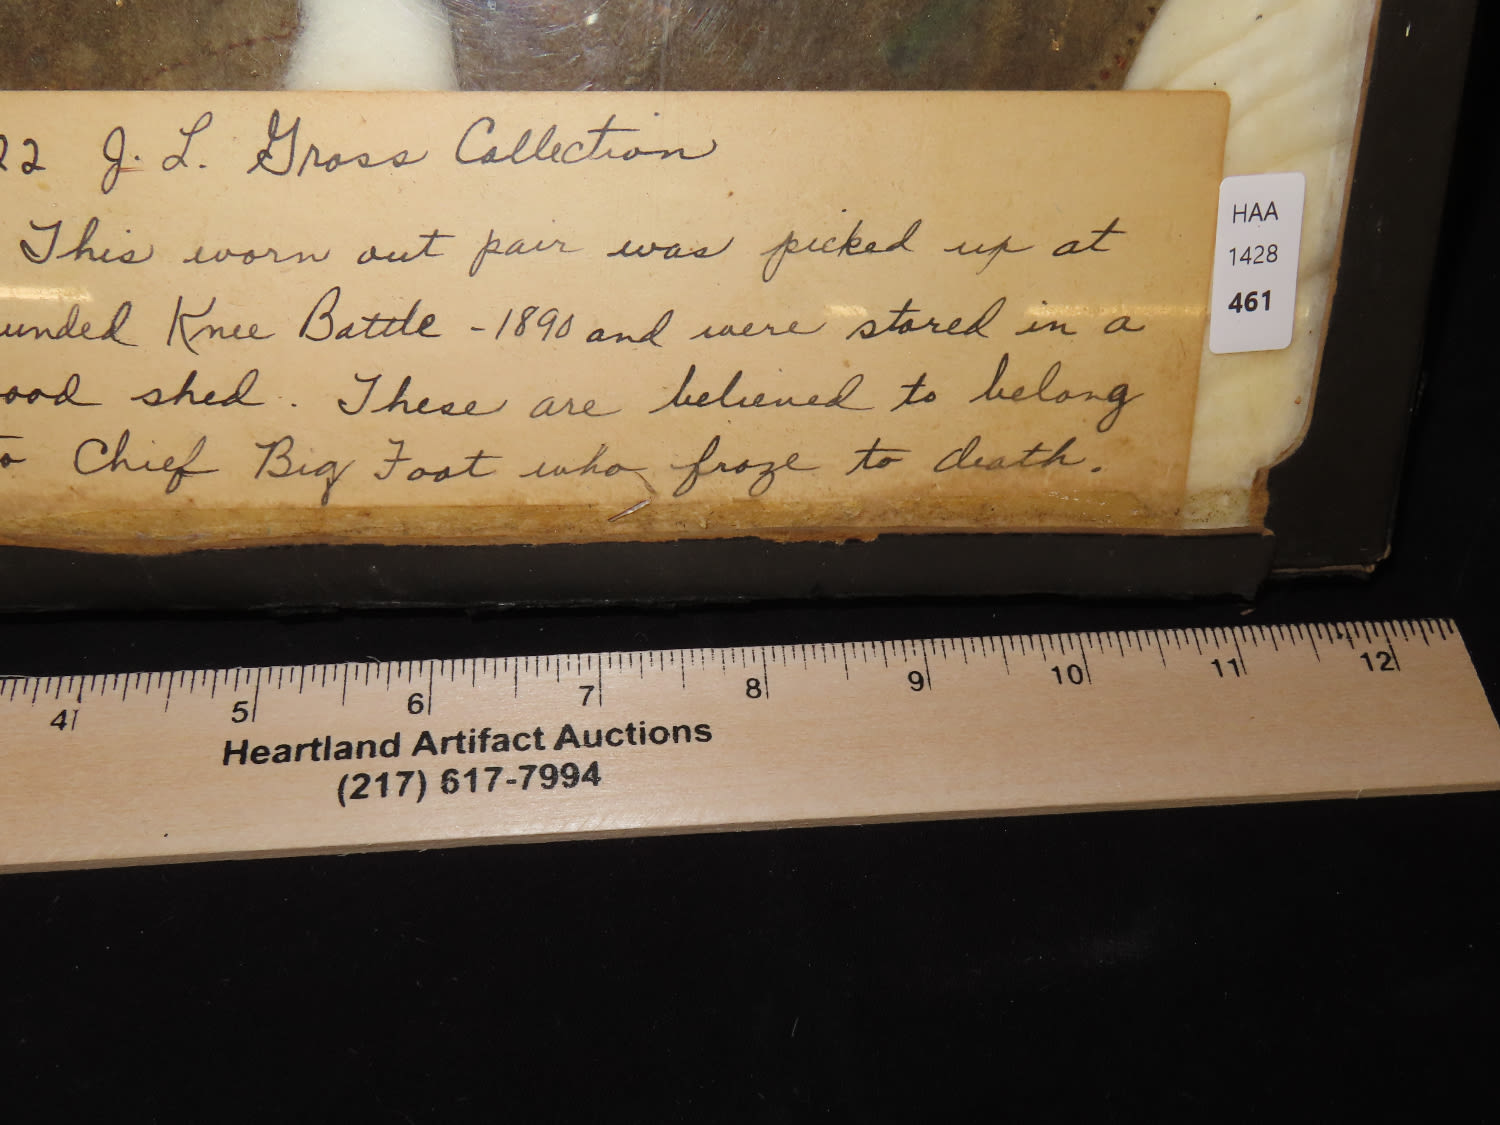 22 J. L. Gross Collection
This worn out pair was picked up at
unded Knee Battle - 1890 and were stored in a
ood shed. These are believed to belong
to Chief Big Foot who froze to death.
HAA
1428
461
4 5 6 7 8 9 10 11 12
Heartland Artifact Auctions
(217) 617-7994